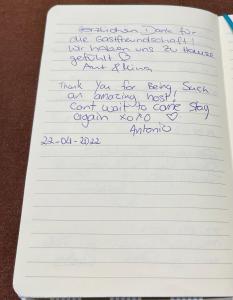 Herzlichen Dank für
die Gastfreundschaft!
Wir haben uns zu Hause
gefühlt ♡
Thank You for Being Such
an amazing host!
Cant wait to come stay
again xoxo ♡
Antonio
22-04-2022